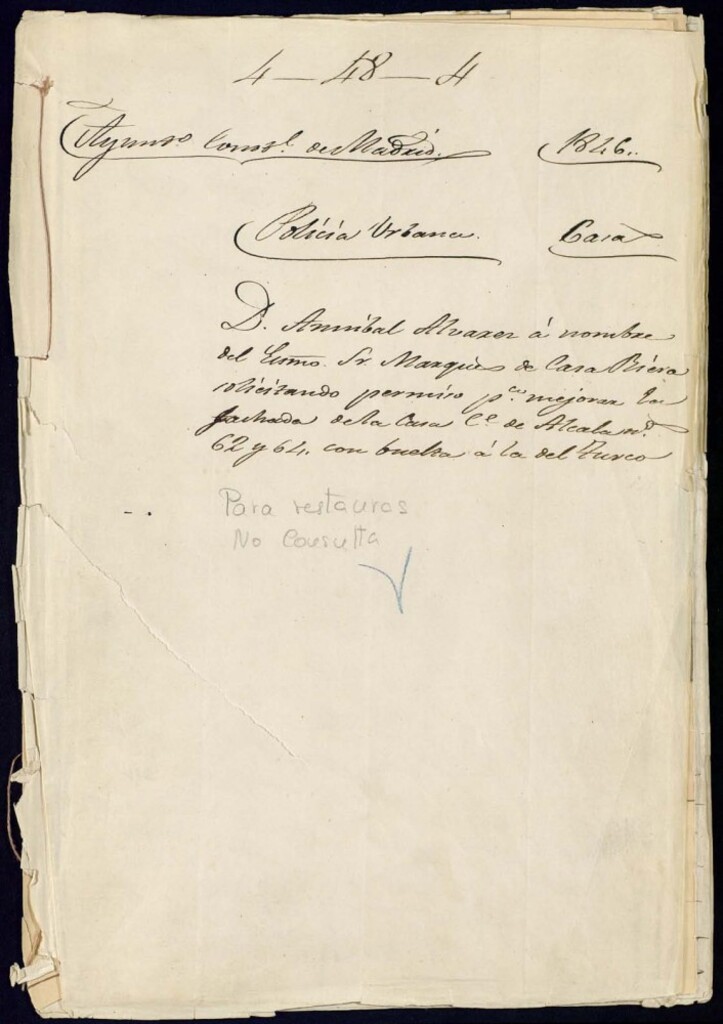 4 — 48 — 4
Ayunto. Consl. de Madrid. 1846.
Policia Urbana. Casa
D. Annibal Alvarez á nombre
del Exmo. Sr. Marques de Casa Riera
solicitando permiso pa. mejorar la
fachada de la Casa Ce. de Alcala no.
62 y 64. con buelta á la del Turco
Para restauras
No Consulta